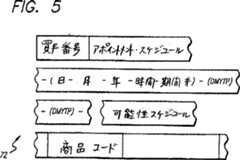 FIG. 5
買手番号 アポイントメント・スケジュール
-(日-月-年-時間・期間キ)-(DMYTP)
-(DMYTP)- 可能性スケジュール
商品コード
72